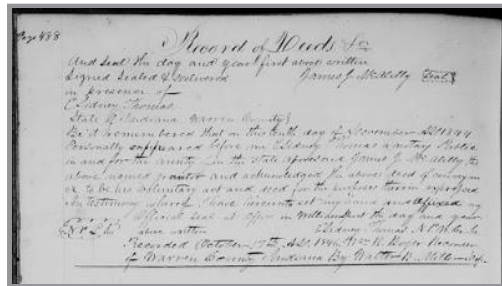 Page 488
Record of Deeds &c
And Seal the day and year first above written
Signed Sealed & delivered James J. McAlilly Seal
in presence of
E Sidney Thomas
State of Indiana Warren County
Be it remembered that on this tenth day of November AD 1844
Personally appeared before me E Sidney Thomas a notary Public
in and for the county in the state aforesaid James J McAlilly the
above named grantor and acknowledged the above deed of conveyan
ce to be his voluntary act and deed for the purposes therein expressed
In testimony whereof I have hereunto set my hand and affixed my
official seal at office in Williamsport the day and year
above written E Sidney Thomas N P W. Co. In.
Recorded October 17th AD. 1846 Wm R. Boyer Recorder
of Warren County Indiana By Walter B. Miller Dep.